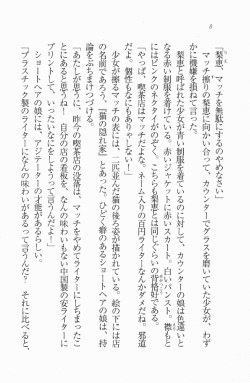 8
「梨恵、マッチを無駄にするのやめなさい」
マッチ擦りの梨恵に向かい合って、カウンターでグラスを磨いていた少女が、わず
かに機嫌を損ねて言った。
梨恵と呼ばれた少女が青い制服を着ているのに対して、カウンターの娘は色違いと
なる赤い制服を着ている。赤いジャケットに赤いスカート、白いパンスト。襟もと
にはピンクのネクタイがのぞく。こちらも梨恵とは同じぐらいの背格好である。
「やっぱ、喫茶店はマッチだよな。ネーム入りの百円ライターなんかダメだね。邪道
だよ。個性もなんにもありゃしない」
少女が擦るマッチの表には、二匹並んだ猫の後ろ姿が描かれている。絵の下には店
の名前であろう『猫の隠れ家』とあった。ひどく癖のあるショートヘアの娘は、持
論をぶちまけつづける。
「あたしが思うに、昨今の喫茶店の没落は、マッチをやめてライターにしちまったこ
とにあるね！　自分の店の看板を、なんの味わいもない中国製の安ライターに
プリントして、いったいなにをしようって言うんだよ！」
ショートヘアの娘には、アジテーターの才能があるらしい。
「プラスチック製のライターになんの味わいがあるって言うんだ？　それに比べると、